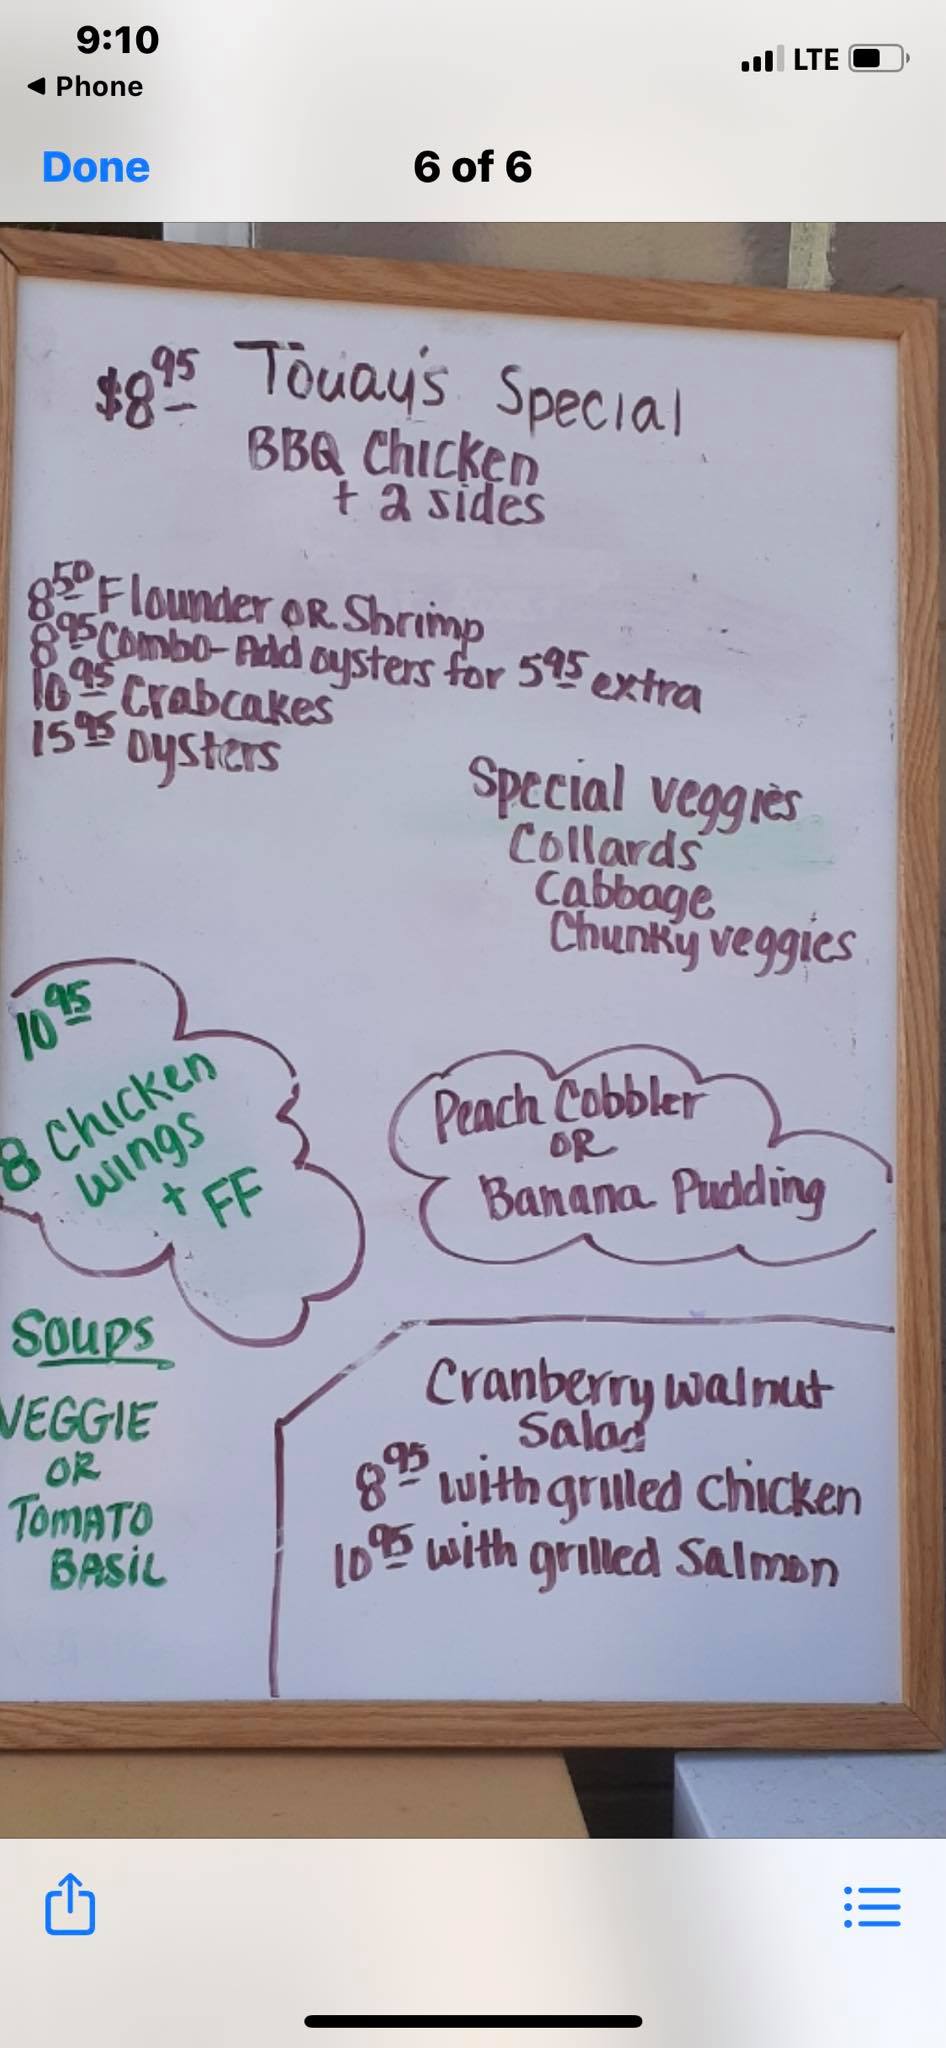 9:10
LTE
Phone
Done
6 of 6
$8.95 Today's Special
BBQ Chicken
+ 2 sides
8.50 Flounder OR Shrimp
8.95 Combo- Add oysters for 5.95 extra
10.95 Crabcakes
15.95 oysters
Special veggies
Collards
Cabbage
Chunky veggies
10.95
8 Chicken
wings
+ FF
Peach Cobbler
OR
Banana Pudding
SOUPS
VEGGIE
OR
TOMATO
BASIL
Cranberry walnut
Salad
8.95 with grilled Chicken
10.95 with grilled Salmon